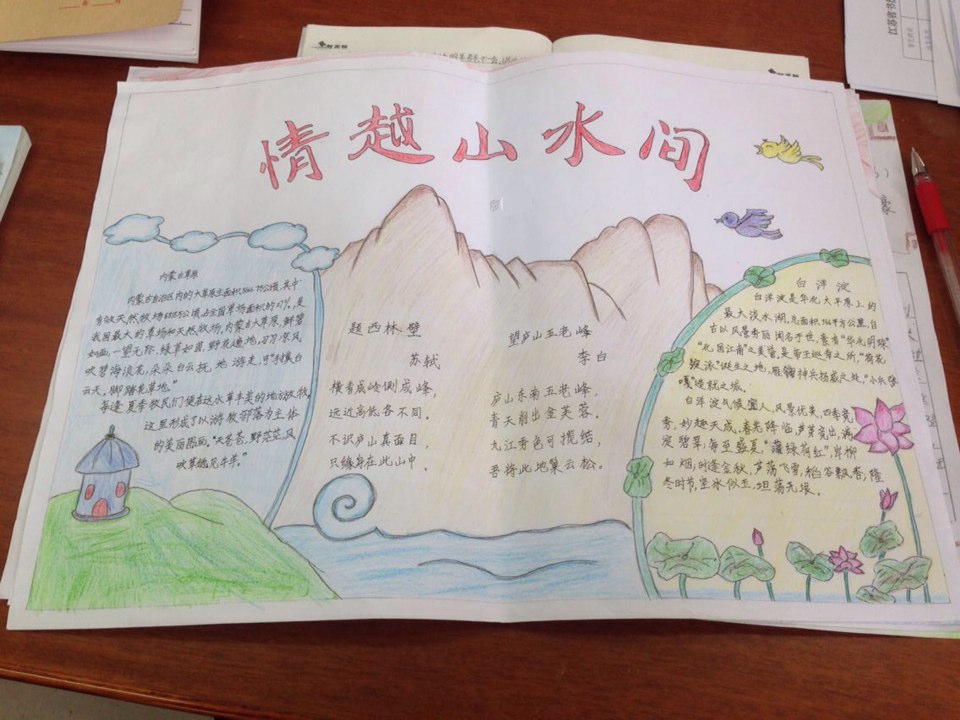 情越山水间
内蒙古草原
内蒙古自治区内的大草原
有效天然牧场
我国最大的草场和天然牧场,内蒙古大草原,鲜碧
如画,一望无际,绿草如茵,野花遍地,
吹碧海浪花,朵朵白云
云天,脚踏花草地。”
每逢夏季牧民们便在这水草丰美的地方放牧,
这里形成了以游牧部落为主体
的美丽图画,“天苍苍,野茫茫,风
吹草低见牛羊。”
题西林壁
苏轼
横看成岭侧成峰,
远近高低各不同。
不识庐山真面目,
只缘身在此山中。
望庐山五老峰
李白
庐山东南五老峰,
青天削出金芙蓉。
九江秀色可揽结,
吾将此地巢云松。
白洋淀
白洋淀是华北大平原上的
最大淡水湖,总面积366平方公里,自
古以风景秀丽闻名于世,素有“华北明珠”
“北国江南”之美誉,是帝王巡幸之所,“荷花
淀派”诞生之地,雁翎神兵扬威之处,“小兵张
嘎”
白洋淀气候宜人,风景优美,四季竞
秀,妙趣天成,春光降临,芦芽竞出,满
淀碧翠;每至盛夏,“蒲绿荷红”,岸柳
如烟;时逢金秋,芦荡飞雪,稻谷飘香;隆
冬时节,坚冰似玉,坦荡无垠。